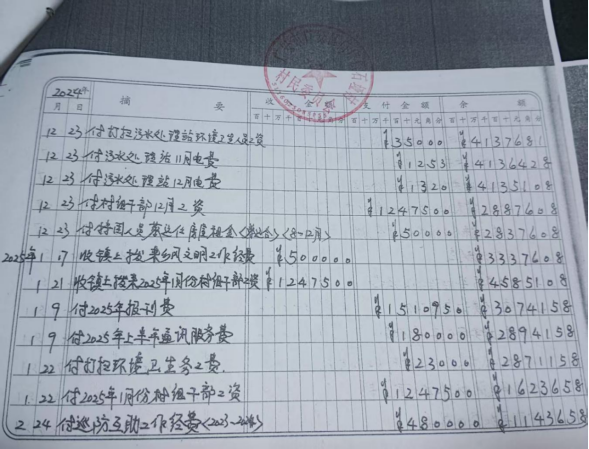 2024年 摘 要 收 金额 支付金额 余 额
月 日 百十万千百十元角分 百十万千百十元角分 百十万千百十元角分
12 23 付打扫污水处理站环境卫生人员工资 ¥35000 ¥4137681
12 23 付污水处理站11月电费 ¥1253 ¥4136428
12 23 付污水处理站12月电费 ¥1320 ¥4135108
12 23 付村组干部12月工资 ¥1247500 ¥2887608
12 23 付特困人员 房屋租金 <8-12月> ¥50000 ¥2837608
2025年 1 17 收镇上拨来乡风文明工作经费 ¥500000 ¥3337608
1 21 收镇上拨来2025年1月份村组干部工资 ¥1247500 ¥4585108
1 9 付2025年报刊费 ¥1510950 ¥3074158
1 9 付2025年上半年通讯服务费 ¥180000 ¥2894158
1 22 付打扫环境卫生务工费 ¥23000 ¥2871158
1 22 付2025年1月份村组干部工资 ¥1247500 ¥1623658
2 24 付巡防互助工作经费<2023-2024> ¥480000 ¥1143658
村民委员会